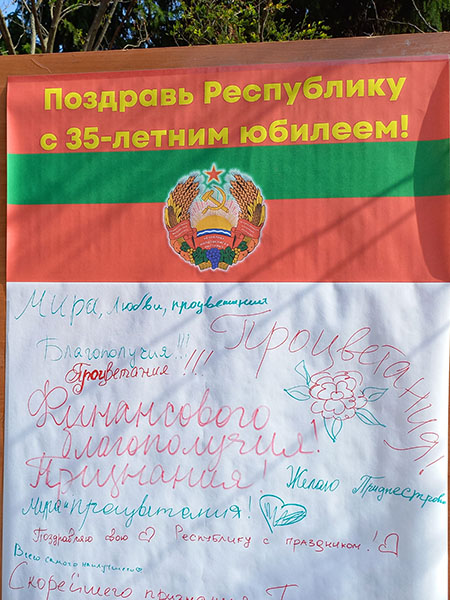 Поздравь Республику
с 35-летним юбилеем!
Мира, любви, процветания
Процветания!
Благополучия!!!
Процветания!!!
Финансового
благополучия!
Признания!
Желаю Приднестровью
Мира и процвитания!
Поздравляю свою Республику с праздником!
Всего самого наилучшего
Скорейшего признания